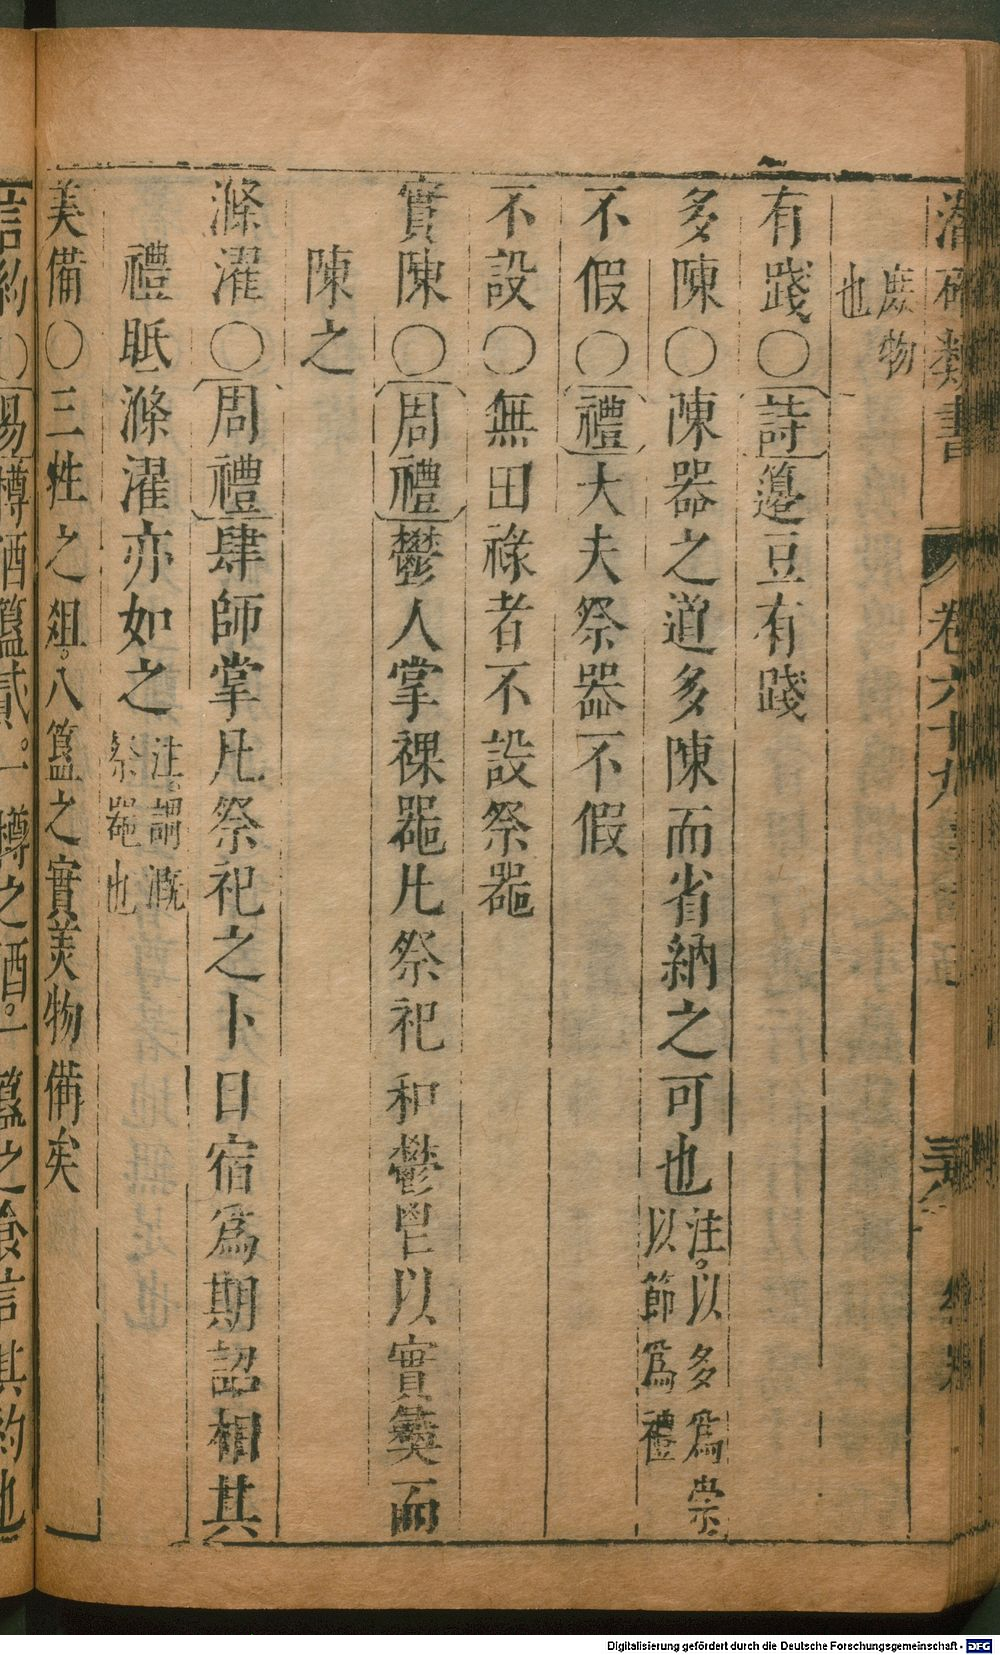 潛確類書 卷六十九
庶物
也
有踐〇詩籩豆有踐
多陳〇陳器之道多陳而省納之可也注以多爲崇以節爲禮
不假〇禮大夫祭器不假
不設〇無田祿者不設祭噐
實陳〇周禮鬱人掌祼噐凡祭祀和鬱鬯以實彝而
陳之
滌濯〇周禮肆師掌凡祭祀之卜日宿爲期詔相其
禮眂滌濯亦如之注。謂溉祭噐也
美備〇三牲之俎。八簋之實美物備矣
信約〇易樽酒簋貳。一樽之酒。一簋之食信其約也
Digitalisierung gefördert durch die Deutsche Forschungsgemeinschaft - DFG